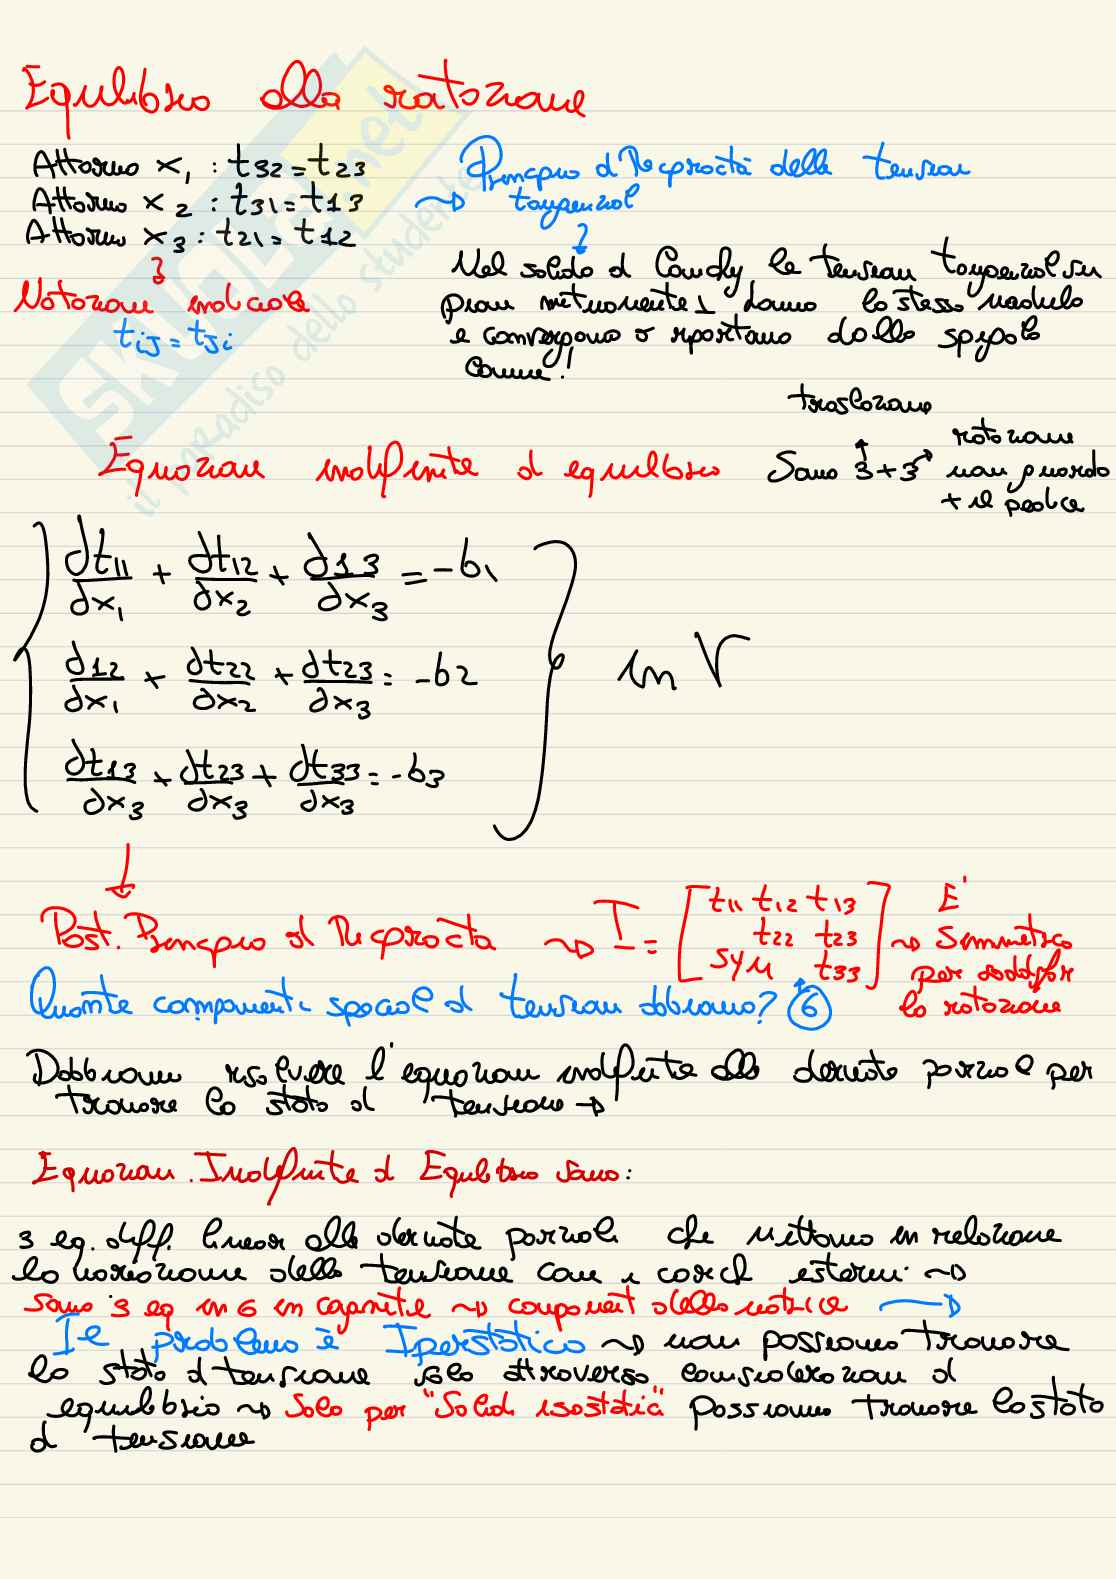 Equilibrio alla rotazione
Attorno x₁ : t32 = t23
Attorno x₂ : t31 = t13
Attorno x₃ : t21 = t12
→ Principio di Reciprocità delle tensioni
tangenziali
Notazione indiciale
tij = tji
Nel solido di Cauchy le tensioni tangenziali su
piani mutuamente ⊥ hanno lo stesso modulo
e convergono o ripartono dallo spigolo
comune!
Equazioni indefinite di equilibrio
traslazione
Sono 3+3
rotazione
non guardo
+ il pedice
∂t11/∂x₁ + ∂t12/∂x₂ + ∂13/∂x₃ = -b₁
∂12/∂x₁ + ∂t22/∂x₂ + ∂t23/∂x₃ = -b2
∂t13/∂x₃ + ∂t23/∂x₃ + ∂t33/∂x₃ = -b3
in V
Post. Principio di Reciprocità → T = [t11 t12 t13
t22 t23
sym t33] →
E'
Simmetrico
per soddisfare
la rotazione
Quante componenti speciali di tensioni abbiamo? 6
Dobbiamo risolvere l'equazioni indefinite alle derivate parziali per
trovare lo stato di tensione →
Equazioni Indefinite di Equilibrio sono:
3 eq. diff. lineari alle derivate parziali che mettono in relazione
la variazione delle tensione con i carichi esterni →
Sono 3 eq in 6 incognite → componenti della matrice →
Il problema è Iperstatico → non possiamo trovare
lo stato di tensione solo attraverso considerazioni di
equilibrio → Solo per "Solidi isostatici" possiamo trovare lo stato
di tensione
SKUOLA.net
il paradiso dello studente